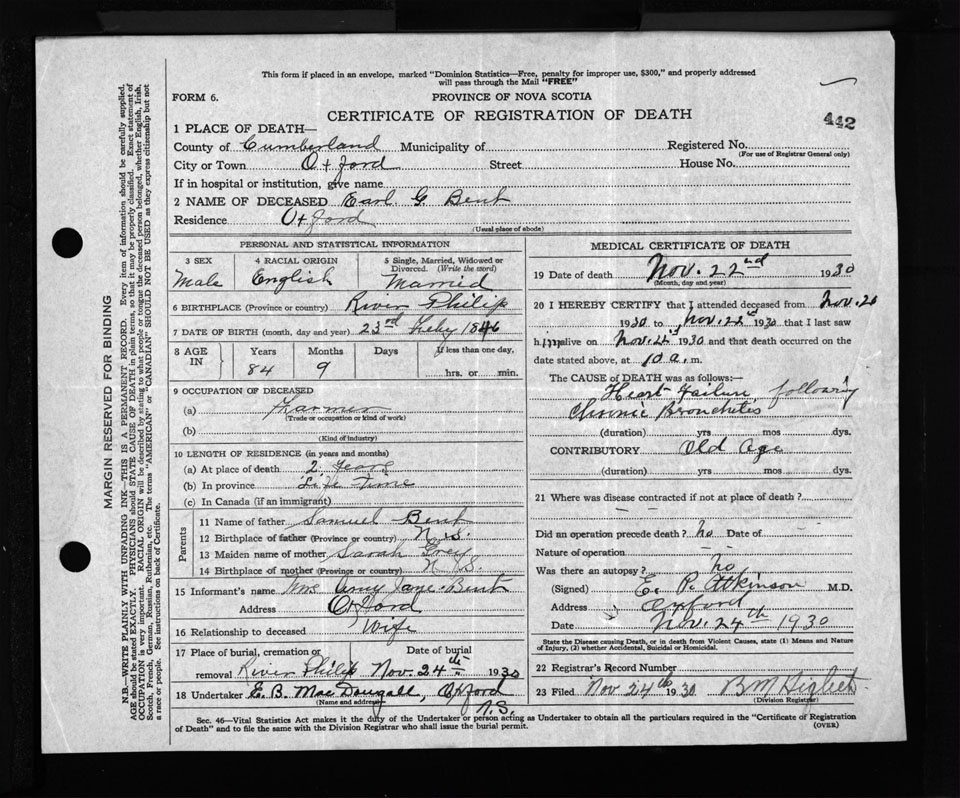 This form if placed in an envelope, marked "Dominion Statistics—Free, penalty for improper use, $300," and properly addressed
will pass through the Mail "FREE"
FORM 6.
PROVINCE OF NOVA SCOTIA
CERTIFICATE OF REGISTRATION OF DEATH
442
1 PLACE OF DEATH—
County of Cumberland Municipality of Registered No.
(For use of Registrar General only)
City or Town Oxford Street House No.
If in hospital or institution, give name
2 NAME OF DECEASED Earl G Bent
Residence Oxford
(Usual place of abode)
PERSONAL AND STATISTICAL INFORMATION
3 SEX 4 RACIAL ORIGIN 5 Single, Married, Widowed or
Divorced. (Write the word)
Male English Married
6 BIRTHPLACE (Province or country) River Philip
7 DATE OF BIRTH (month, day and year) 23rd Feby 1846
8 AGE IN Years Months Days If less than one day,
84 9 hrs. or min.
9 OCCUPATION OF DECEASED
(a) Farmer
(Trade or occupation or kind of work)
(b)
(Kind of industry)
10 LENGTH OF RESIDENCE (in years and months)
(a) At place of death 2 Years
(b) In province Life Time
(c) In Canada (if an immigrant)
Parents
11 Name of father Samuel Bent
12 Birthplace of father (Province or country) N.S.
13 Maiden name of mother Sarah
14 Birthplace of mother (Province or country) N.S.
15 Informant's name Mrs Amy Jane Bent
Address Oxford
16 Relationship to deceased Wife
17 Place of burial, cremation or Date of burial
removal River Philip Nov. 24th 1930
18 Undertaker E. B. MacDougall, Oxford
(Name and address) N.S.
MEDICAL CERTIFICATE OF DEATH
19 Date of death Nov. 22nd 1930
(Month, day and year)
20 I HEREBY CERTIFY that I attended deceased from Nov. 20
1930 to Nov. 22nd 1930 that I last saw
him alive on Nov. 1930 and that death occurred on the
date stated above, at 10 a.m.
The CAUSE of DEATH was as follows:—
Heart Failure following
Chronic Bronchitis
(duration) yrs mos dys.
CONTRIBUTORY Old Age
(duration) yrs. mos. dys.
21 Where was disease contracted if not at place of death?
Did an operation precede death? no Date of
Nature of operation
Was there an autopsy? no
(Signed) E. P. Atkinson M.D.
Address Oxford
Date Nov. 24th 1930
State the Disease causing Death, or in death from Violent Causes, state (1) Means and Nature
of Injury, (2) whether Accidental, Suicidal or Homicidal.
22 Registrar's Record Number
23 Filed Nov 24th 1930 B M
(Division Registrar)
Sec. 46—Vital Statistics Act makes it the duty of the Undertaker or person acting as Undertaker to obtain all the particulars required in the "Certificate of Registration
of Death" and to file the same with the Division Registrar who shall issue the burial permit.
(OVER)
MARGIN RESERVED FOR BINDING
N.B.—WRITE PLAINLY WITH UNFADING INK—THIS IS A PERMANENT RECORD. Every item of information should be carefully supplied.
AGE should be stated EXACTLY. PHYSICIANS should STATE CAUSE OF DEATH in plain terms, so that it may be properly classified. Exact statement of
OCCUPATION is very important. RACIAL ORIGIN will be described by stating to what people or tongue the deceased person belonged, whether English, Irish,
Scotch, French, German, Russian, Ruthenian, etc. The terms "AMERICAN" or "CANADIAN" SHOULD NOT BE USED as they express citizenship but not
a race or people. See instructions on back of Certificate.